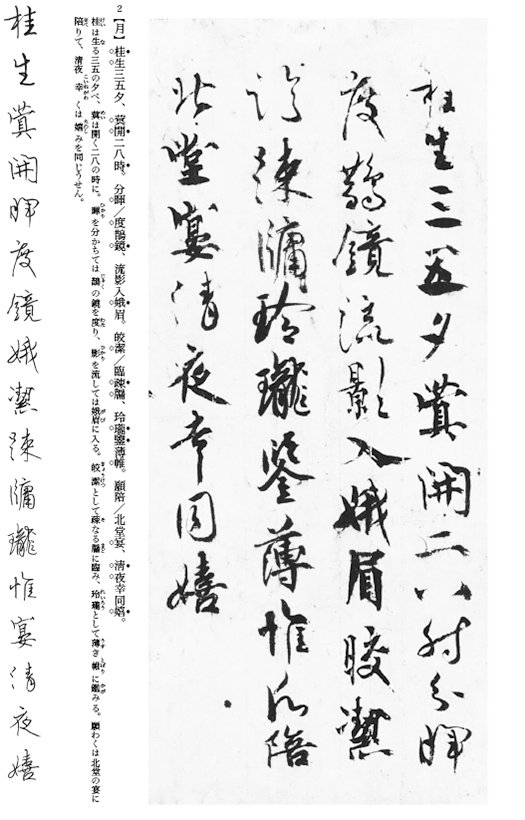 桂生三五夕蓂開二八時分暉
度鵲鏡流影入娥眉皎潔
臨疎牖玲瓏鑒薄帷願陪
北堂宴清夜幸同嬉
2
【月】桂生三五夕、蓂開二八時。分暉／度鵲鏡、流影入娥眉。皎潔／臨疎牖、玲瓏鑒薄帷。願陪／北堂宴、清夜幸同嬉。
桂は生る三五の夕べ、蓂は開く二八の時に。暉を分かちては鵲の鏡を度り、影を流しては娥眉に入る。皎潔として疎なる牖に臨み、玲瓏として薄き帷に鑑みる。願わくは北堂の宴に
陪りて、清夜幸くは嬉みを同じうせん。
桂生蓂開暉度鏡娥潔疎牖瓏帷宴清夜嬉